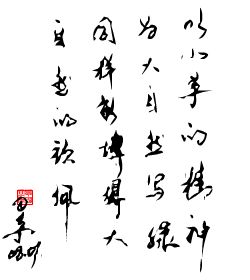 以小草的精神
为大自然写绿
同样能博得大
自然的钦佩